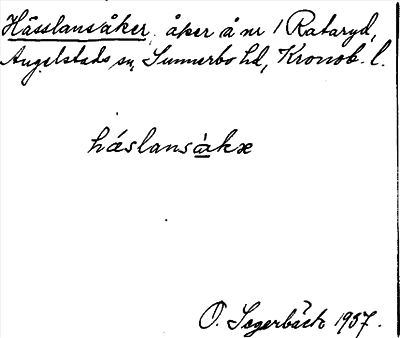 Hässlansåker, åker å nr 1 Rataryd,
Angelstads sn, Sunnerbo hd, Kronob. l.
háslansàkæ
O. Segerbäck 1937.